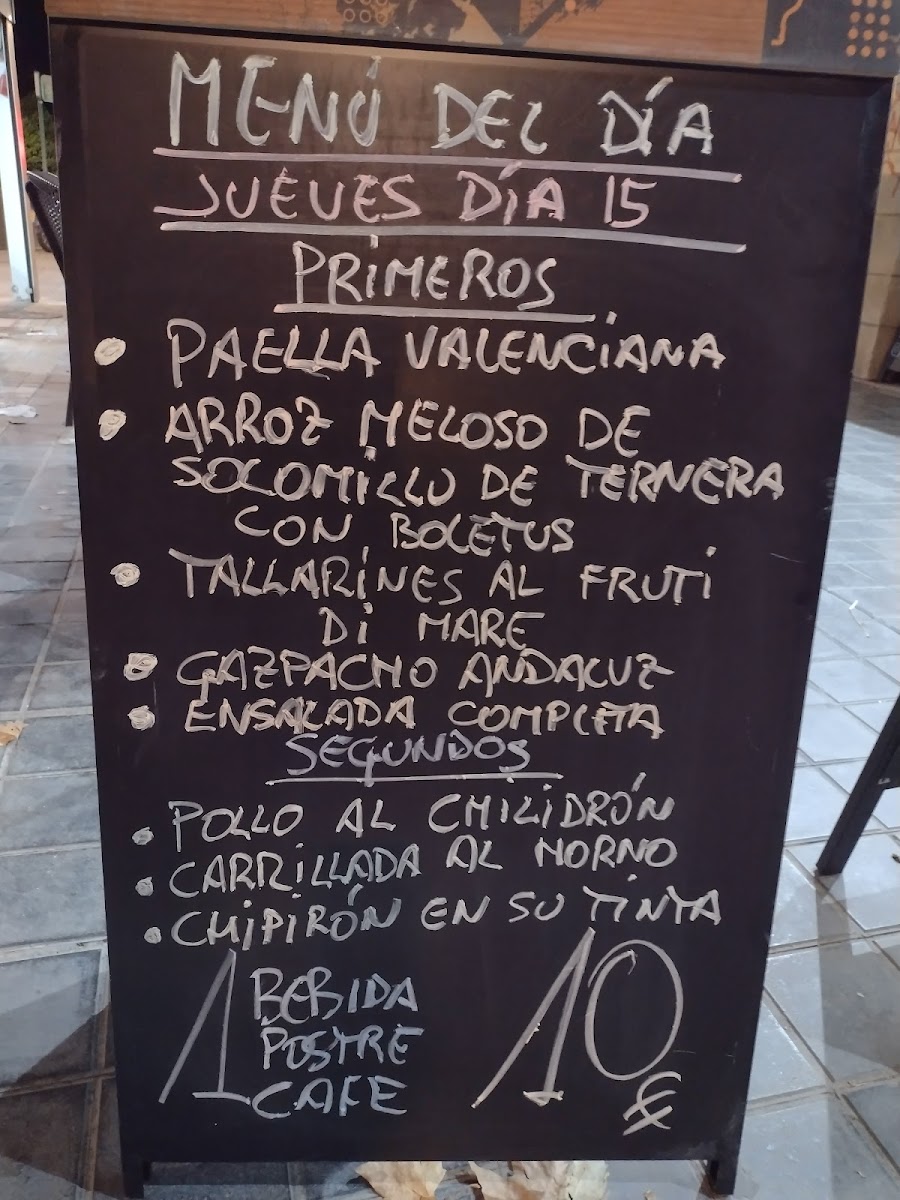 MENÚ DEL DÍA
JUEVES DÍA 15
PRIMEROS
PAELLA VALENCIANA
ARROZ MELOSO DE
SOLOMILLO DE TERNERA
CON BOLETUS
TALLARINES AL FRUTI
DI MARE
GAZPACHO ANDALUZ
ENSALADA COMPLETA
SEGUNDOS
POLLO AL CHILIDRÓN
CARRILLADA AL HORNO
CHIPIRÓN EN SU TINTA
1 BEBIDA
POSTRE
CAFE
10 €